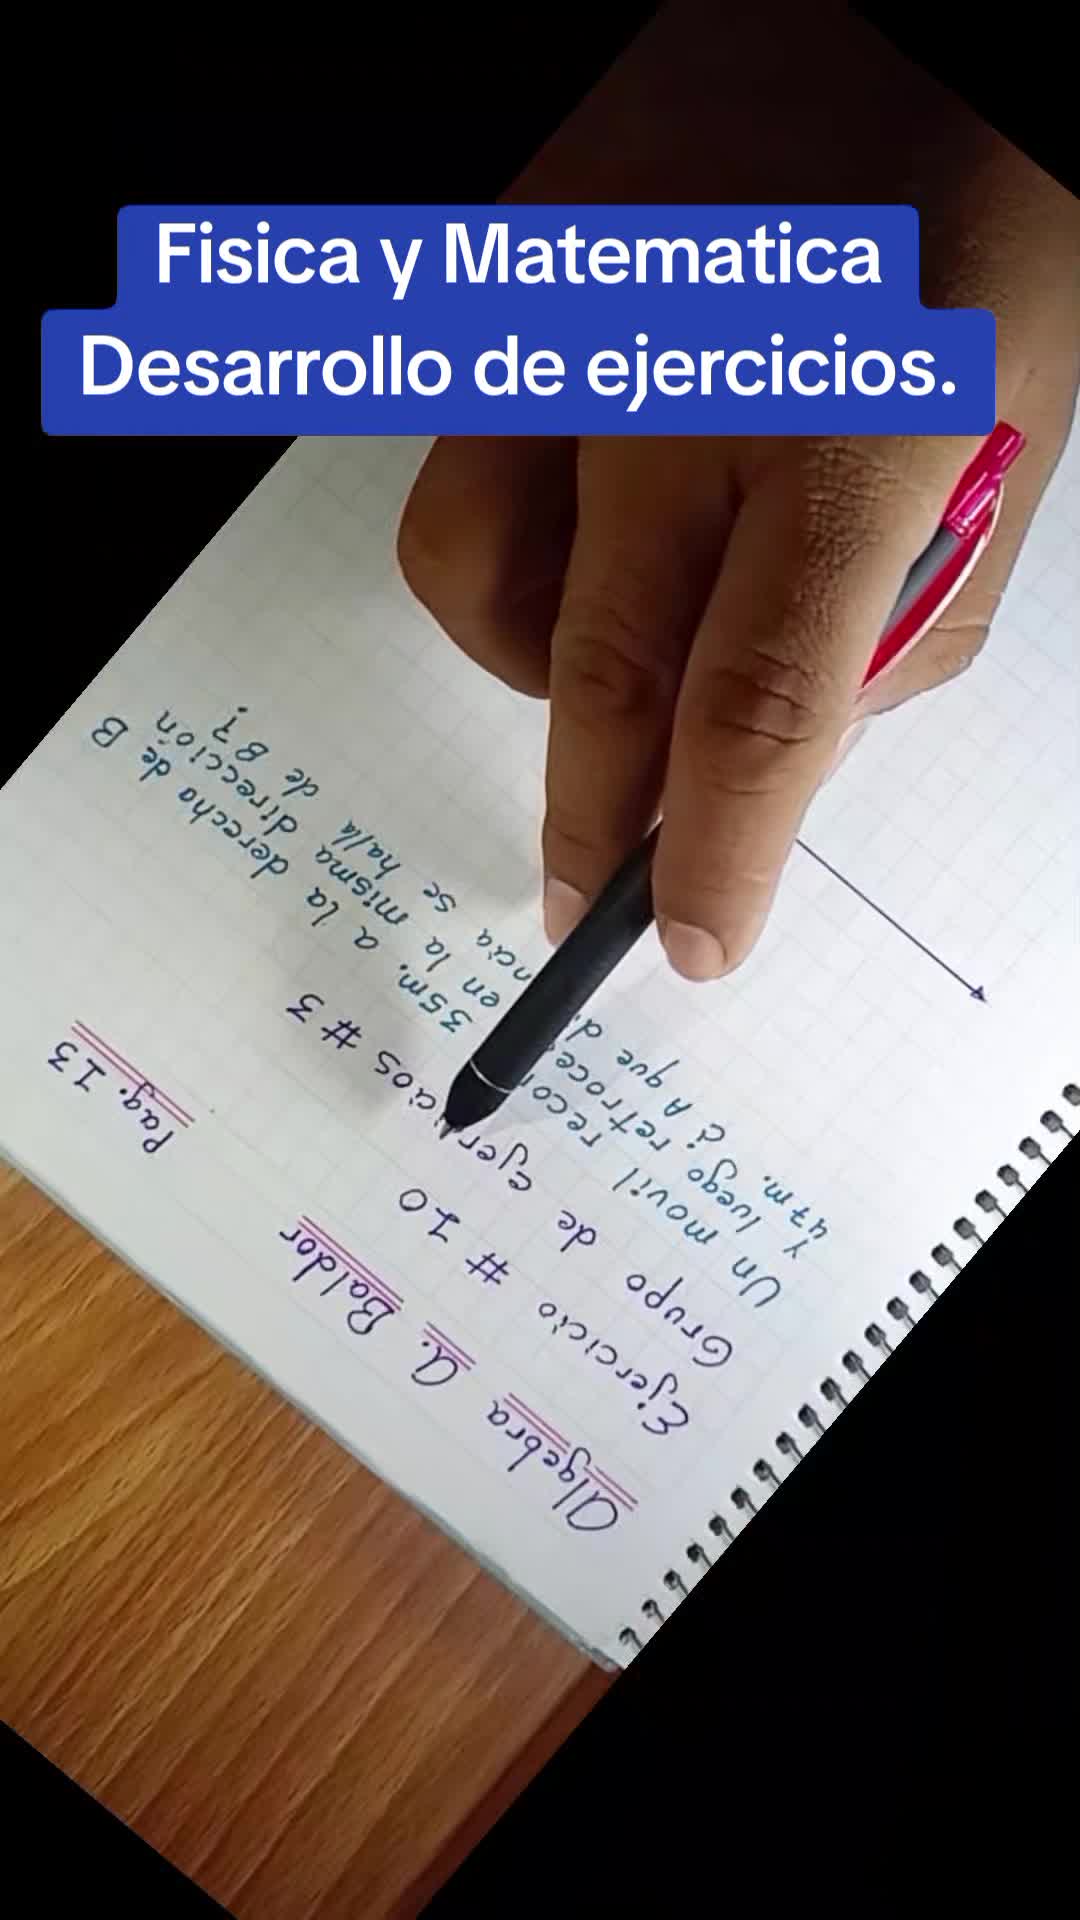 Fisica y Matematica
Desarrollo de ejercicios.
Algebra A. Baldor Pag. 13
Ejercicio # 10
Grupo de ejercicios # 3
Un movil 35m. a la derecha de B
y luego en la misma dirección
47m. ¿A que se halla de B?